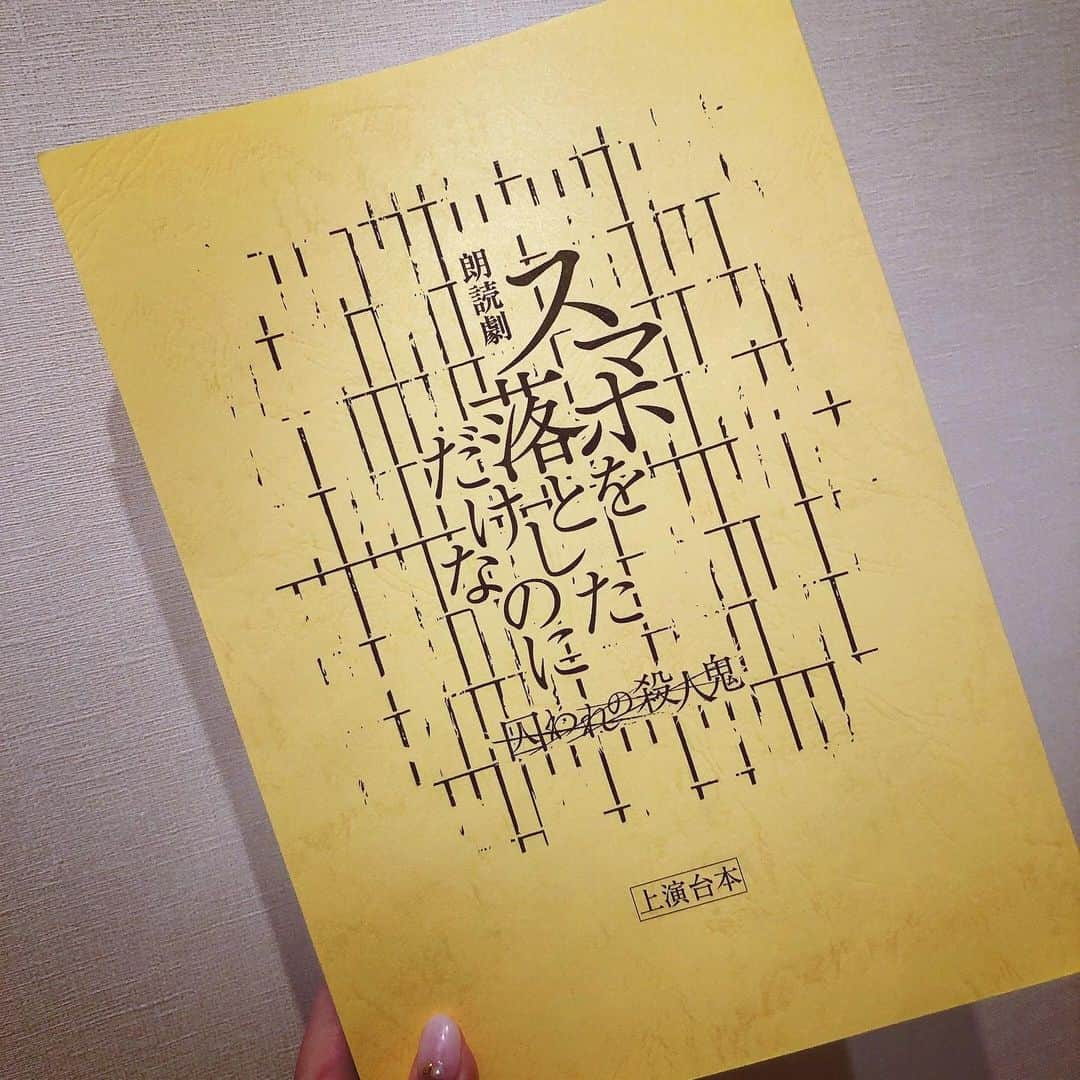 朗読劇
スマホを
落とした
だけなのに
囚われの殺人鬼
上演台本